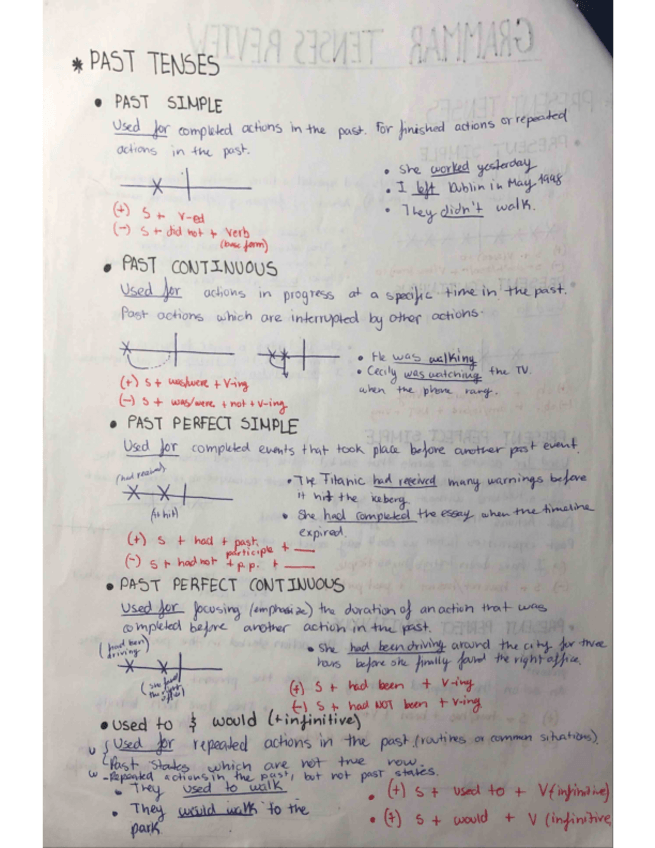 GRAMMAR TENSES REVIEW
* PAST TENSES
• PAST SIMPLE
Used for completed actions in the past. For finished actions or repeated
actions in the past.
• She worked yesterday
• I left Dublin in May 1998
• They didn't walk.
(+) S + V-ed
(-) S + did not + verb
(base form)
• PAST CONTINUOUS
Used for actions in progress at a specific time in the past.
Past actions which are interrupted by other actions.
• He was walking
• Cecily was watching the TV.
when the phone rang.
(+) S + was/were + V-ing
(-) S + was/were + not + V-ing
• PAST PERFECT SIMPLE
Used for completed events that took place before another past event.
(had received)
(it hit)
• The Titanic had received many warnings before
it hit the iceberg
• She had completed the essay when the timeline
expired.
(+) S + had + past participle + ___
(-) S + had not + p.p. + ___
• PAST PERFECT CONTINUOUS
Used for focusing (emphasize) the duration of an action that was
completed before another action in the past.
(had been driving)
(she found the right office)
• She had been driving around the city for three
hours before she finally found the right office.
(+) S + had been + V-ing
(-) S + had NOT been + V-ing
• Used to & would (+ infinitive)
U { Used for repeated actions in the past (routines or common situations).
Past States which are not true now.
W - Repeated actions in the past, but not past states.
• They used to walk
• They would walk to the
park
• (+) S + used to + V (infinitive)
• (+) S + would + V (infinitive